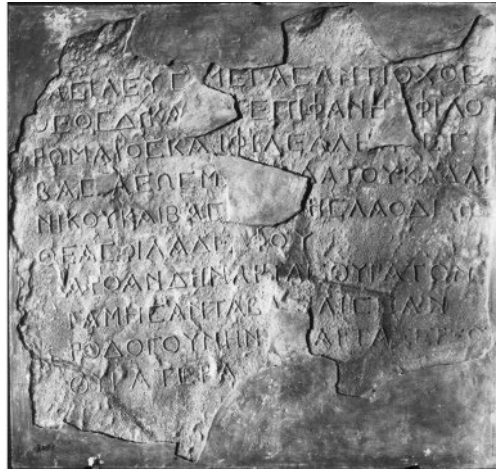 ΑΣΙΛΕΥΣ ΜΕΓΑΣ ΑΝΤΙΟΧΟΣ
ΘΕΟΣ ΔΙΚΑ ΕΠΙΦΑΝΗΣ ΦΙΛΟ
ΡΩΜΑΙΟΣ ΚΑΙ ΦΙΛΕΛΛΗ
ΒΑΣΙΛΕΩΣ Μ ΔΑΤΟΥ ΚΑΛΛΙ
ΝΙΚΟΥ ΚΑΙ ΒΑΣ ΗΣ ΛΑΟΔΙΚΗΣ
ΘΕΑΣ ΦΙΛΑΔΕΛΦΟΥ
ΑΡΟΑΝΔΗΝ
ΓΑΜΗΣΑΝΤΑ ΒΑΣΙΛΙΣΣΑΝ
ΡΟΔΟΓΟΥΝΗΝ
ΘΥΓΑΤΕΡΑ